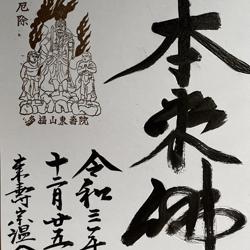 本来佛
厄除
多福山東壽院
令和三年
十二月廿五